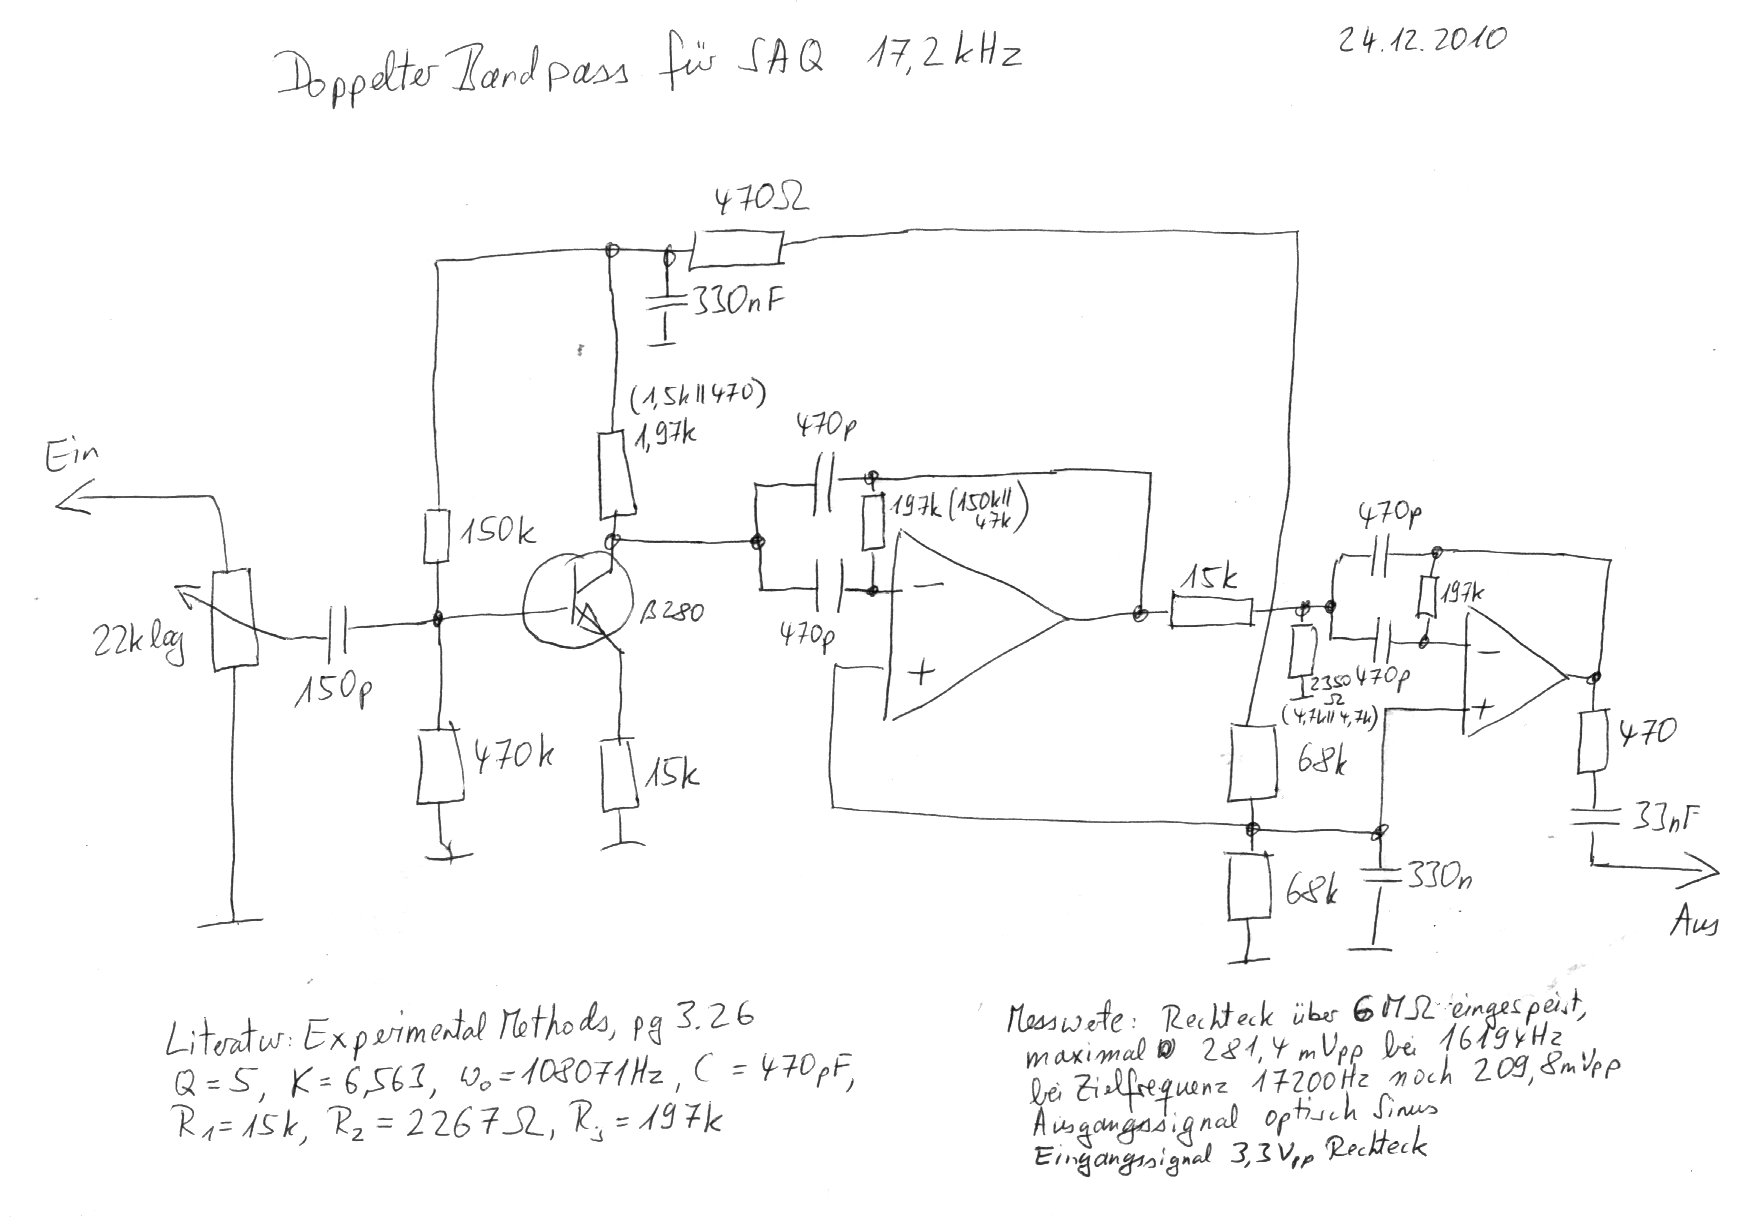 Doppelter Bandpass für SAQ 17,2kHz
24.12.2010
470Ω
330nF
(1,5k||470)
1,97k
470p
Ein
150k
197k (150k||
47k)
470p
15k
197k
B280
22k log
470p
2350
Ω
470p
150p
(4,7k||4,7k)
470
470k
15k
68k
33nF
68k
330n
Aus
Literatur: Experimental Methods, pg 3.26
Q = 5, K = 6,563, ω₀ = 108071Hz, C = 470pF,
R₁ = 15k, R₂ = 2267Ω, R₃ = 197k
Messwete: Rechteck über 6MΩ eingespeist,
maximal 281,4 mVpp bei 16194Hz
bei Zielfrequenz 17200Hz noch 209,8mVpp
Ausgangssignal optisch Sinus
Eingangssignal 3,3Vpp Rechteck